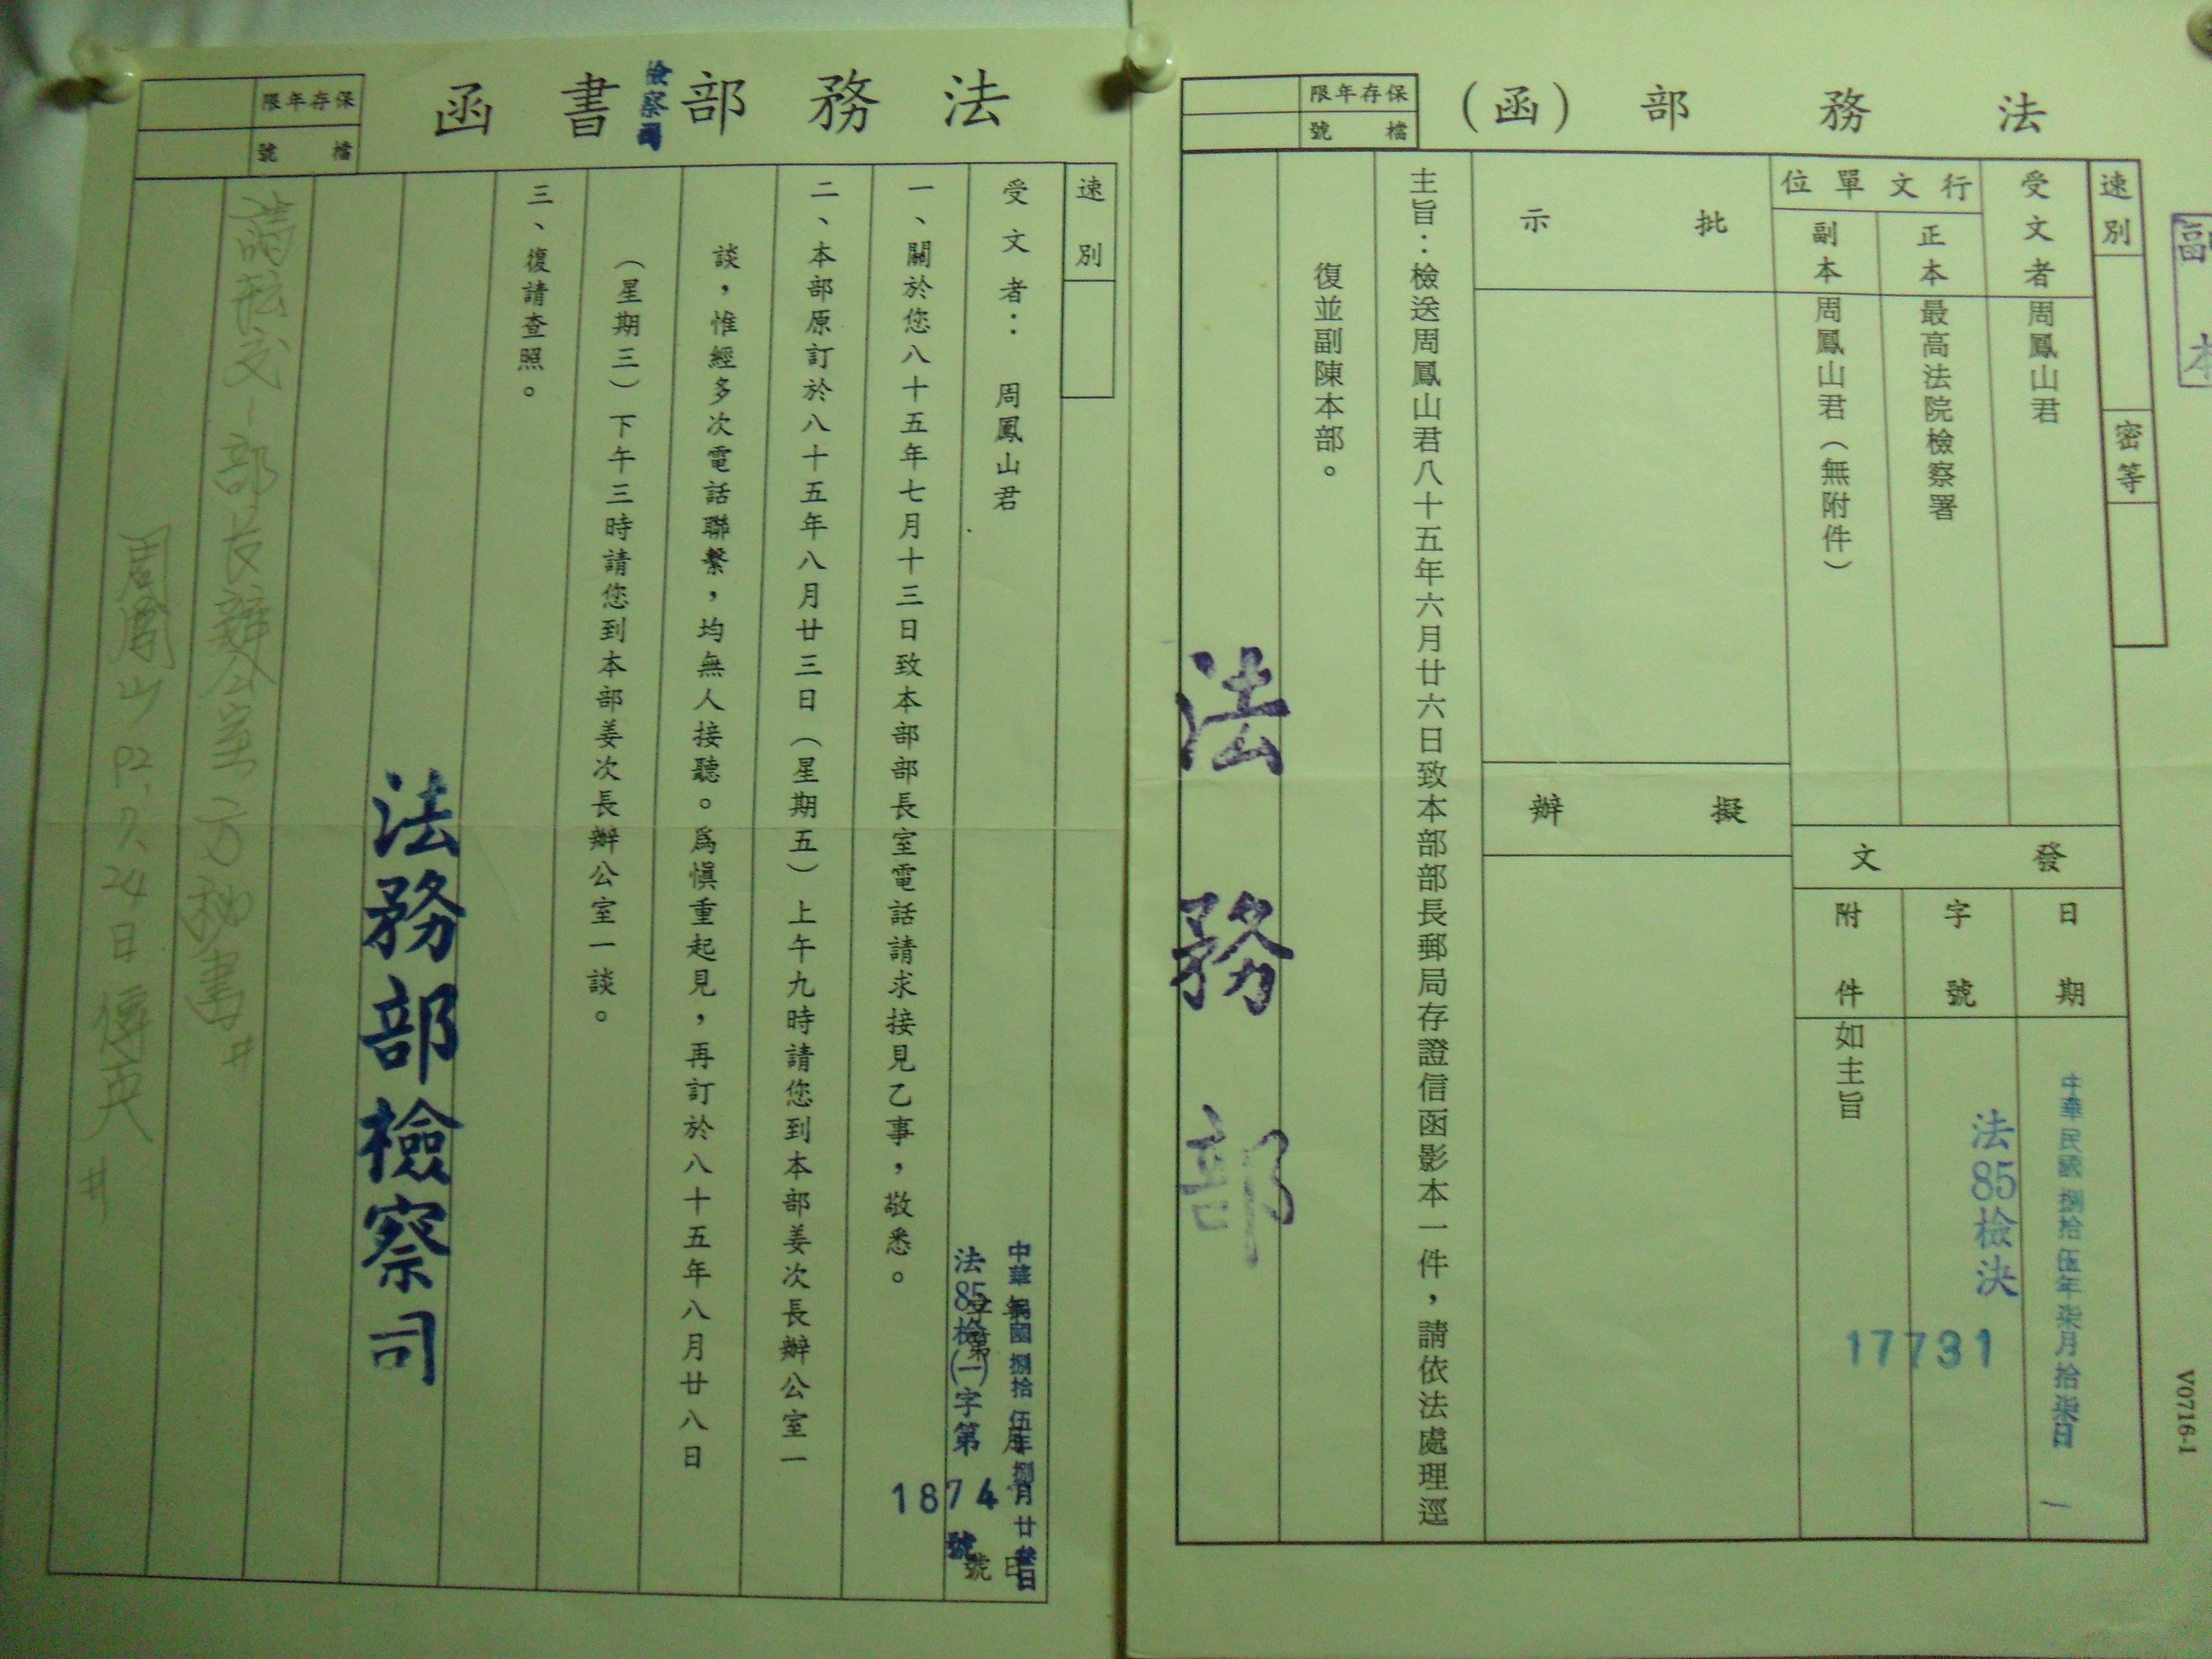 法務部（函）
保存年限
檔號
副本
速別
密等
受文者
周鳳山君
行文單位
正本
最高法院檢察署
副本
周鳳山君（無附件）
發文
日期
中華民國捌拾伍年柒月拾柒日
字號
法85檢決
17731
附件
如主旨
批示
擬辦
主旨：檢送周鳳山君八十五年六月廿六日致本部部長郵局存證信函影本一件，請依法處理逕
復並副陳本部。
法務部
V0716-1
法務部檢察司書函
保存年限
檔號
速別
受文者：周鳳山君
中華民國捌拾伍年捌月廿叁日
法85檢(一)字第
1874
號
一、關於您八十五年七月十三日致本部部長室電話請求接見乙事，敬悉。
二、本部原訂於八十五年八月廿三日（星期五）上午九時請您到本部姜次長辦公室一
談，惟經多次電話聯繫，均無人接聽。為慎重起見，再訂於八十五年八月廿八日
（星期三）下午三時請您到本部姜次長辦公室一談。
三、復請查照。
法務部檢察司
部長辦公室方秘書#